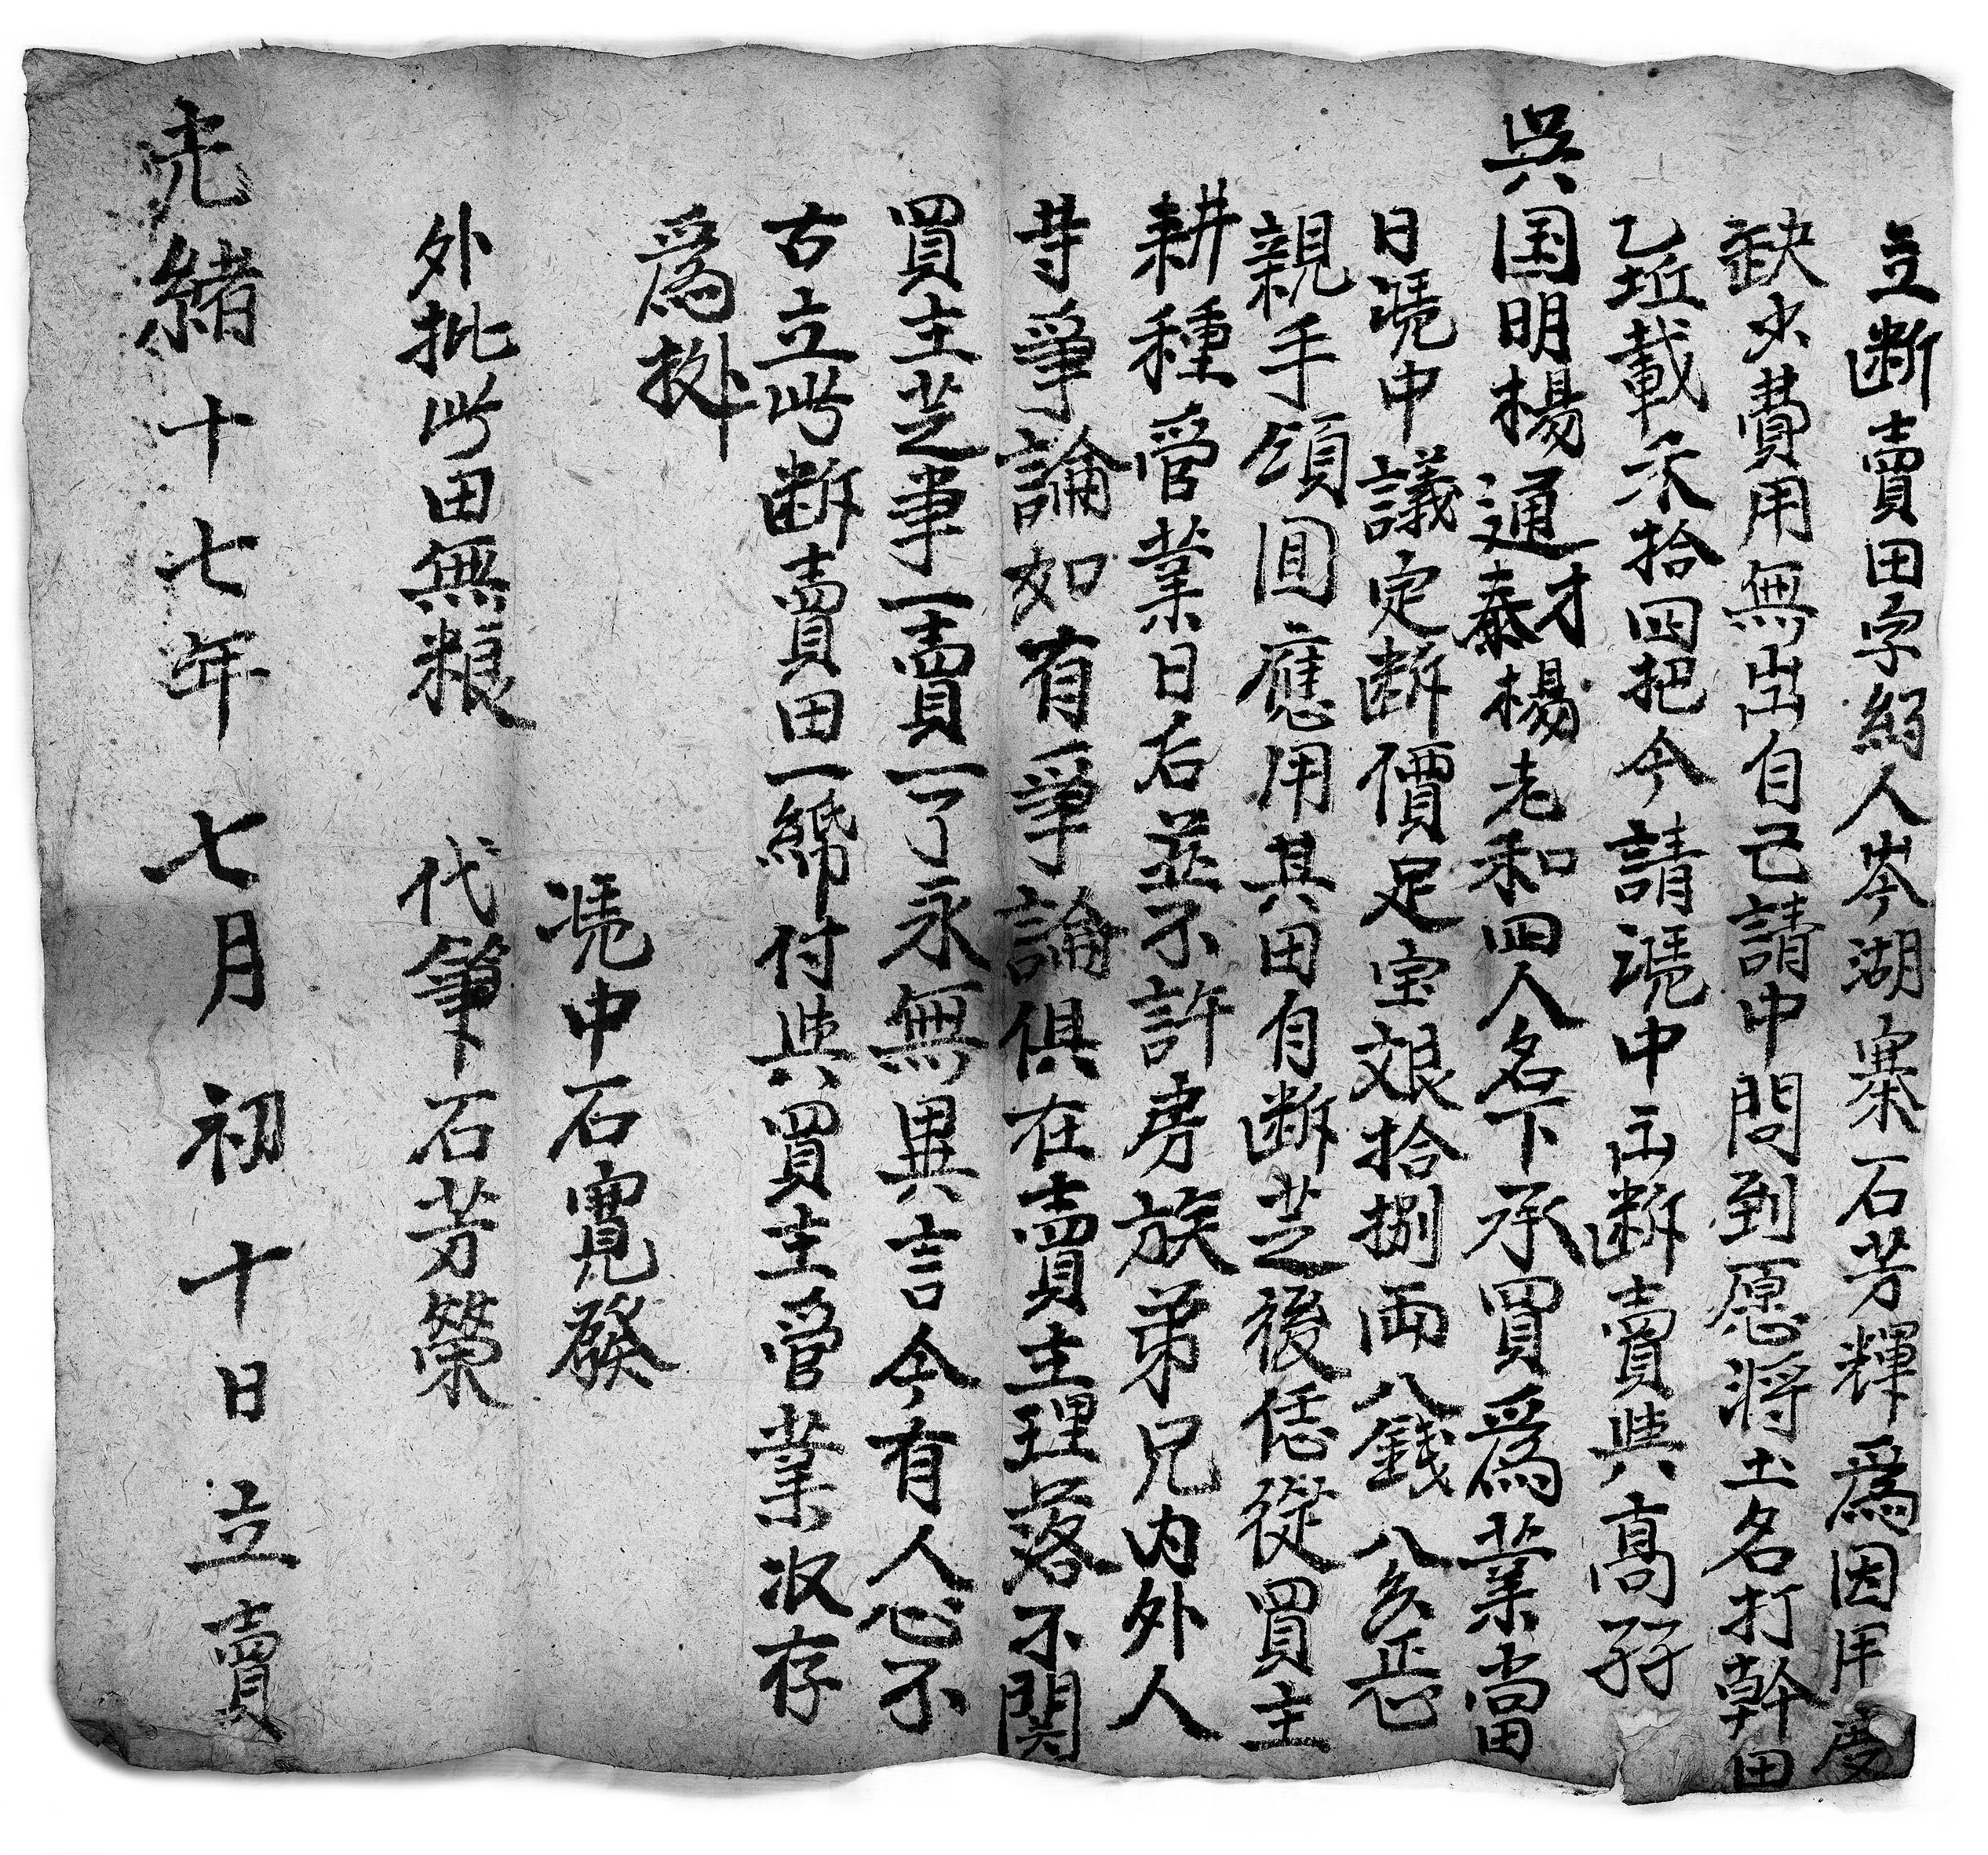 立断賣田字約人岑湖寨石芳輝為因用度
缺少費用無出自己請中問到愿將土名打幹田
乙坵載禾拾四把今請凴中出断賣與高孖
吳国明楊通泰才楊老和四人名下承買為業當
日凴中議定断價足宝艮拾捌両八錢八分正
親手領囬應用其田自断芝後恁從買主
耕種管業日后並不許房族弟兄内外人
等爭論如有爭論俱在賣主理落不関
買主芝事一賣一了永無異言今有人心不
古立此断賣田一紙付與買主管業收存
為拠
凴中石寛發
外批此田無粮 代筆石芳榮
光緒十七年七月初十日立賣